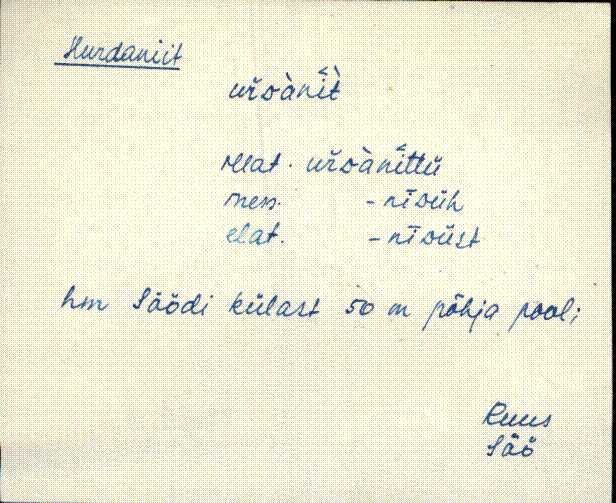 Hurdaniit
uřᴅànì̆t̀
illat. uřᴅànĭttü
iness. -nīᴅüh
elat. -nīᴅüst
hm Söödi külast 50 m põhja pool;
Ruus
Söö